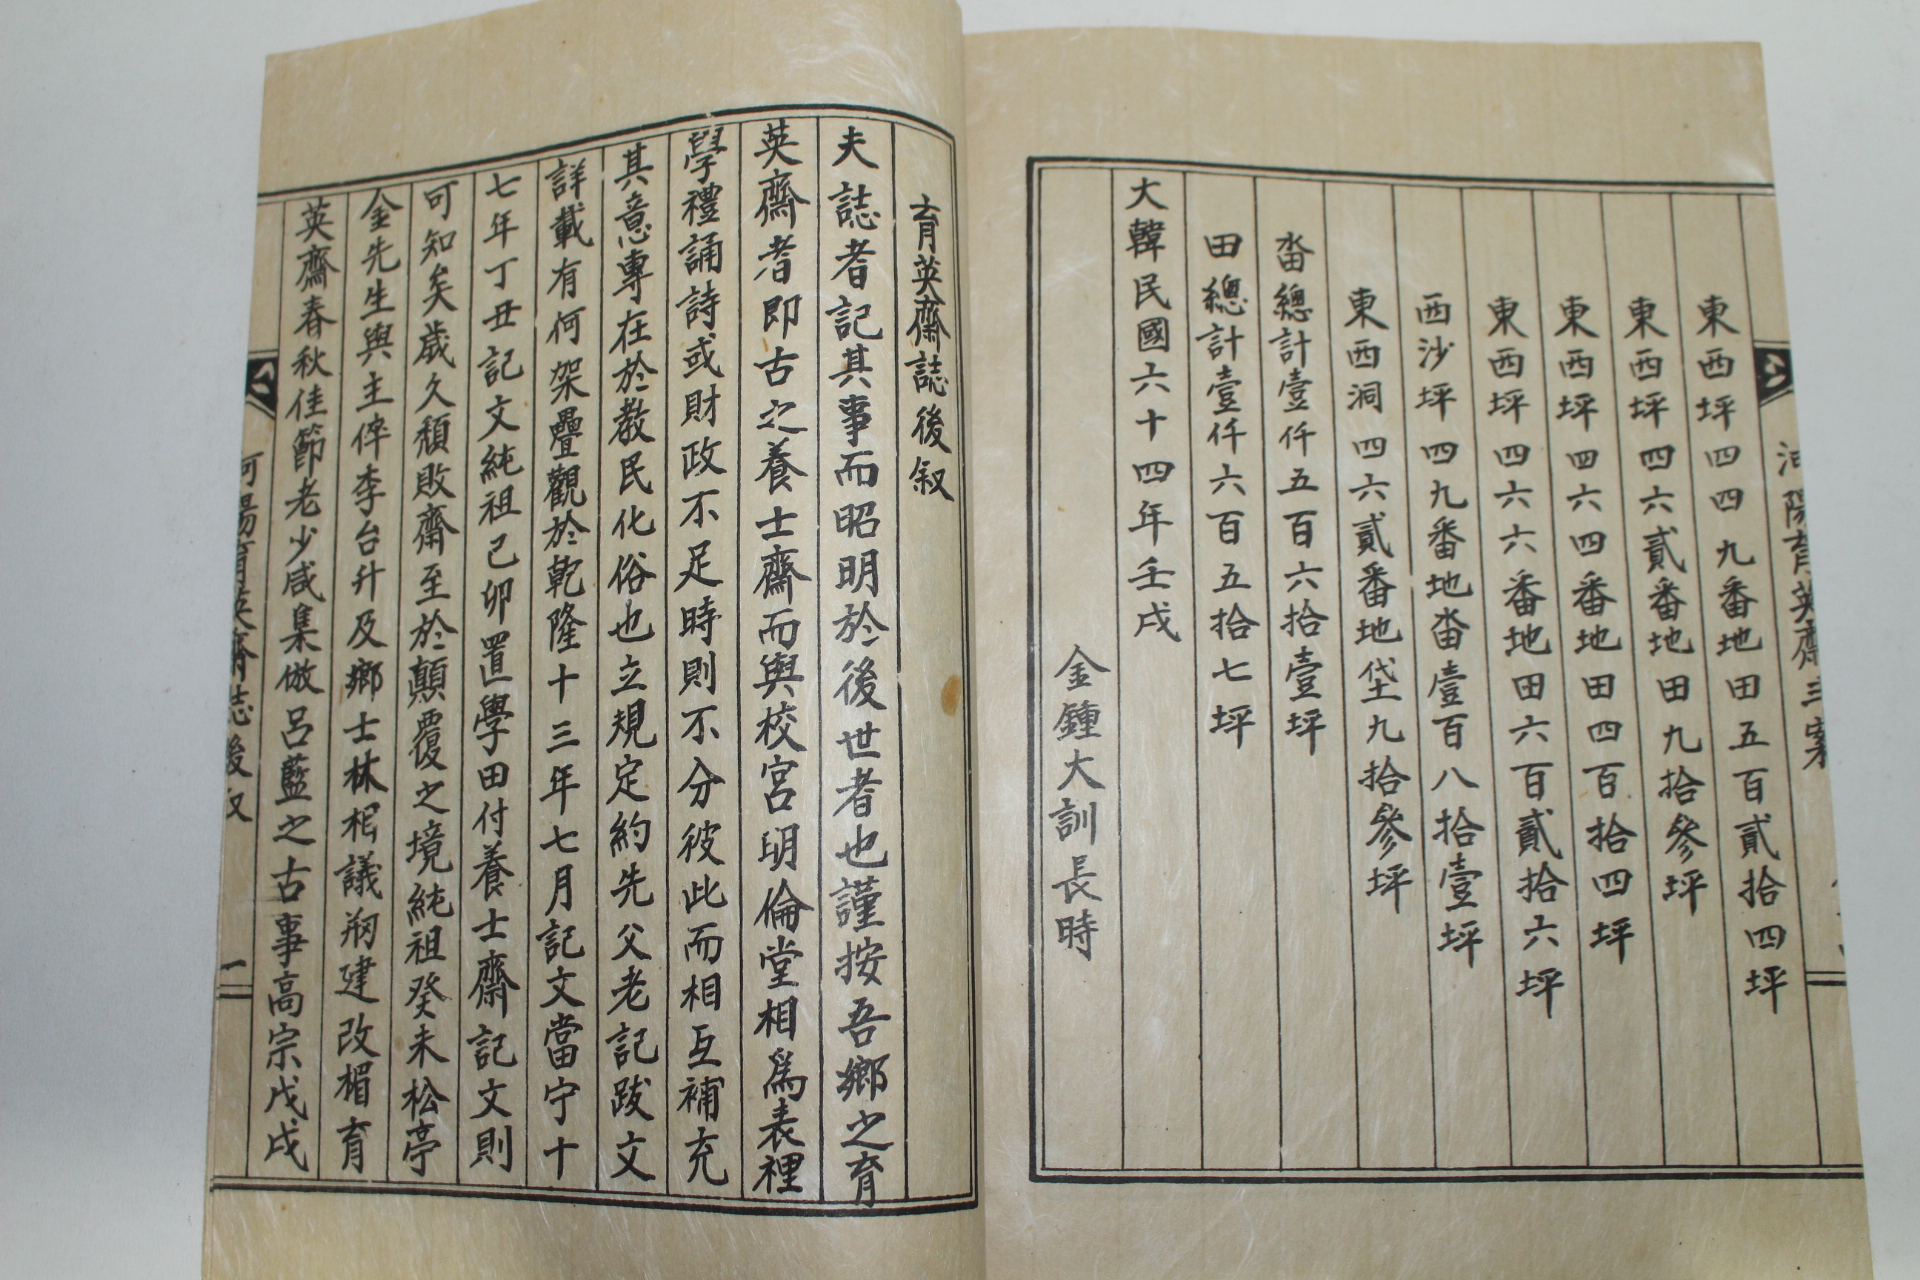 東西坪四四九番地田五百貳拾四坪
東西坪四六貳番地田九拾參坪
東西坪四六四番地田四百拾四坪
東西坪四六六番地田六百貳拾六坪
西沙坪四九番地畓壹百八拾壹坪
東西洞四六貳番地垈九拾參坪
畓總計壹仟五百六拾壹坪
田總計壹仟六百五拾七坪
大韓民國六十四年壬戌
金鍾大訓長時
育英齋誌後叙
夫誌者記其事而昭明於後世者也謹按吾鄉之育
英齋者即古之養士齋而與校宮明倫堂相爲表裡
學禮誦詩或財政不足時則不分彼此而相互補充
其意專在於教民化俗也立規定約先父老記跋文
詳載有何架疊觀於乾隆十三年七月記文當宁十
七年丁丑記文純祖己卯置學田付養士齋記文則
可知矣歲久頹敗齋至於顛覆之境純祖癸未松亭
金先生與主倅李台升及鄉士林相議刱建改楣育
英齋春秋佳節老少咸集倣呂藍之古事高宗戊戌
育英齋誌後叙 二